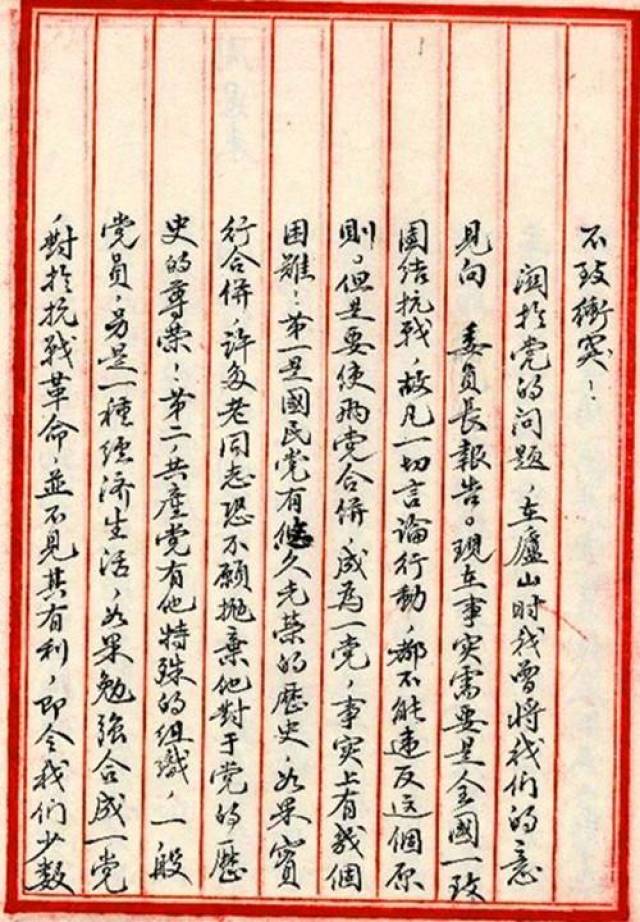 不致衝突！
関於党的问题，在廬山时我曾将我们的意
見向　委員長報告。现在事实需要是全國一致
團结抗战，故凡一切言論行動，都不能违反这個原
則。但是要使两党合併，成為一党，事实上有幾個
困難：第一是國民党有悠久光荣的歷史，如果实
行合併，许多老同志恐不願抛棄他對于党的歷
史的尊荣！第二，共產党有他特殊的组織，一般
党员，另是一種经济生活，如果勉強合成一党
，對於抗战革命，並不見其有利，即令我们少数